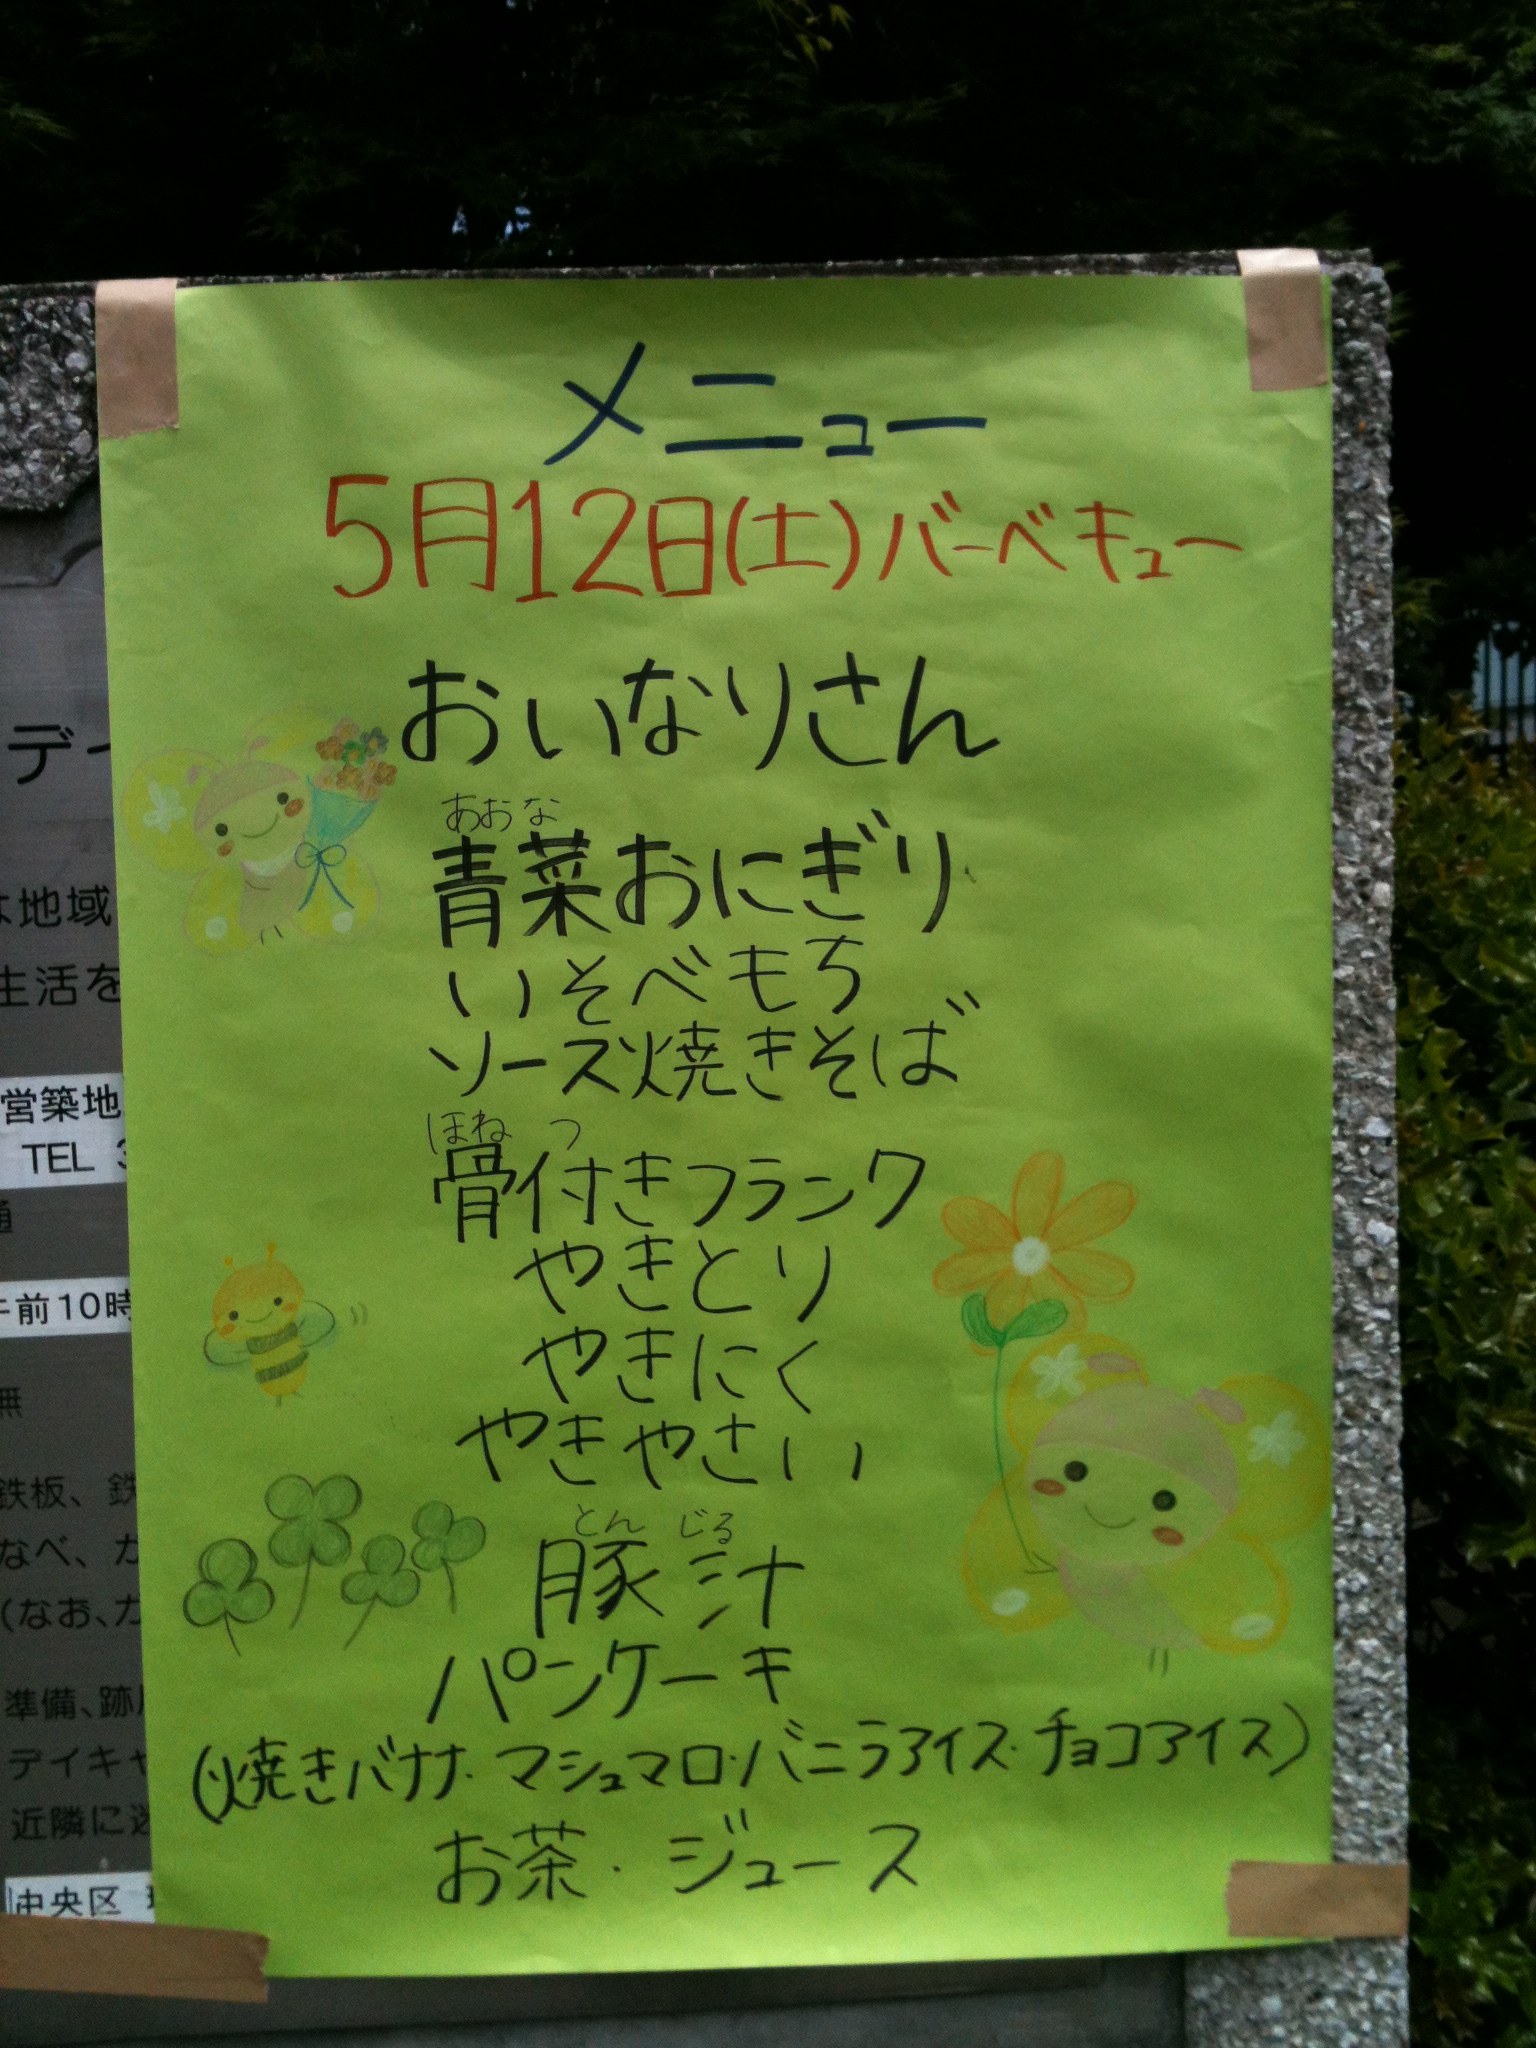 メニュー
5月12日(土)バーベキュー
おいなりさん
あおな
青菜おにぎり
いそべもち
ソース焼きそば
ほね つ
骨付きフランク
やきとり
やきにく
やきやさい
とん じる
豚汁
パンケーキ
(焼きバナナ・マシュマロ・バニラアイス・チョコアイス)
お茶・ジュース
デイ
は地域
生活を
営築地
TEL 3
通
午前10時
無
鉄板、鉄
なべ、カ
(なお、カ
準備、跡片
デイキャ
近隣に迷
中央区